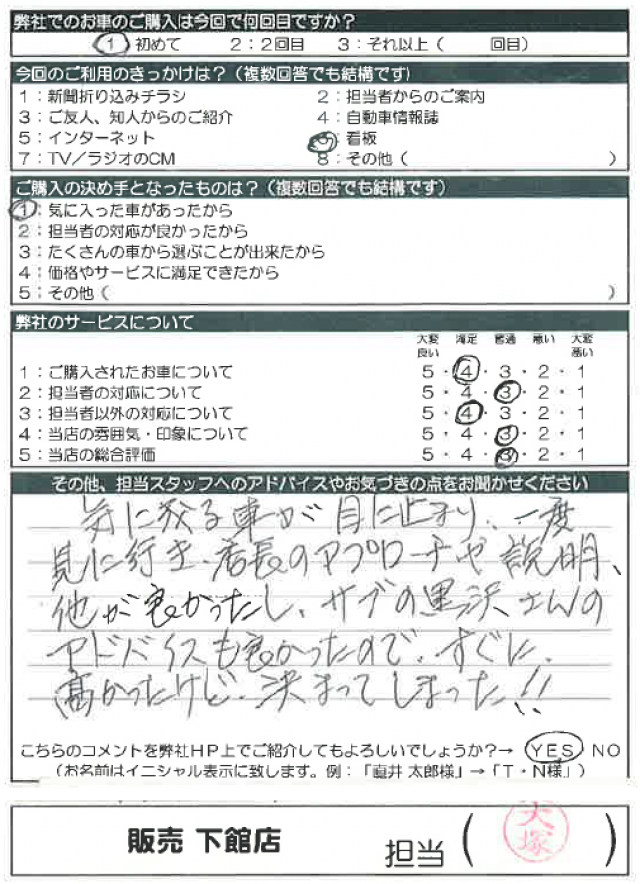 弊社でのお車のご購入は今回で何回目ですか？
1 初めて 2：2回目 3：それ以上（ 回目）
今回のご利用のきっかけは？（複数回答でも結構です）
1：新聞折り込みチラシ 2：担当者からのご案内
3：ご友人、知人からのご紹介 4：自動車情報誌
5：インターネット 6：看板
7：TV／ラジオのCM 8：その他（ ）
ご購入の決め手となったものは？（複数回答でも結構です）
1：気に入った車があったから
2：担当者の対応が良かったから
3：たくさんの車から選ぶことが出来たから
4：価格やサービスに満足できたから
5：その他（ ）
弊社のサービスについて
大変良い 満足 普通 悪い 大変悪い
1：ご購入されたお車について 5・4・3・2・1
2：担当者の対応について 5・4・3・2・1
3：担当者以外の対応について 5・4・3・2・1
4：当店の雰囲気・印象について 5・4・3・2・1
5：当店の総合評価 5・4・3・2・1
その他、担当スタッフへのアドバイスやお気づきの点をお聞かせください
気に致る車が目に止まり、一度
見に行き、店長のアプローチや説明、
他が良かったし、サブの黒沢さんの
アドバイスも良かったので、すぐに、
高かったけど、決まってしまった!!
こちらのコメントを弊社HP上でご紹介してもよろしいでしょうか？→ YES NO
（お名前はイニシャル表示に致します。例：「直井 太郎様」→「T・N様」）
販売 下館店 担当（ 大塚 ）